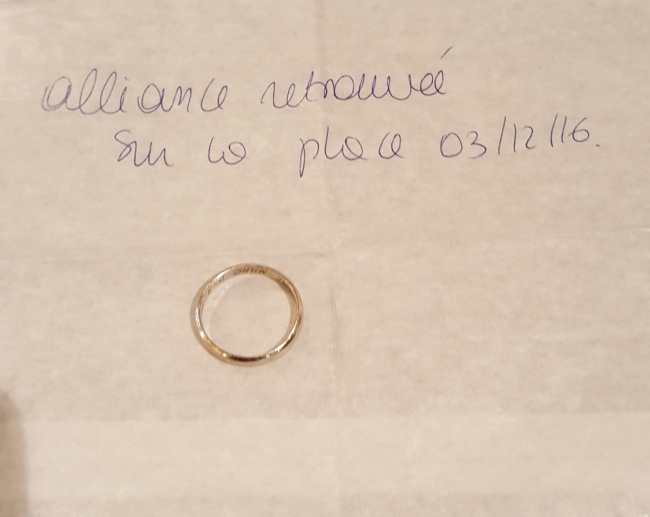 alliance retrouvée
sur la place 03/12/16.